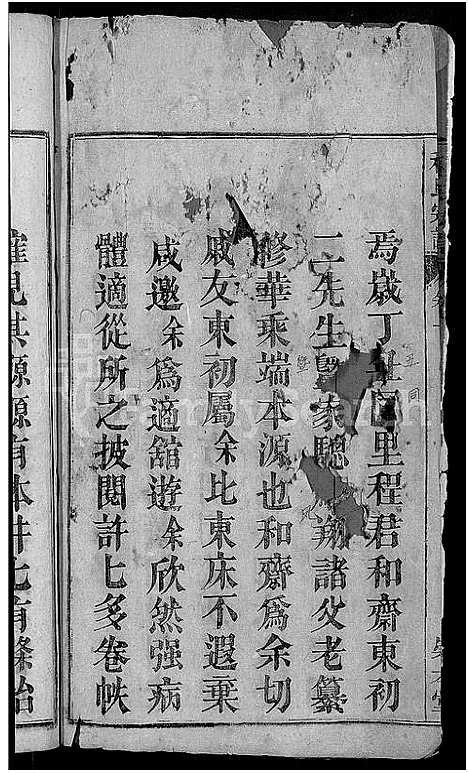 焉歲丁丑同里程君和齋東初
二先生曁家驄翔諸父老纂
修華乘端本源也和齋爲余切
戚友東初屬余比東床不遐棄
咸邀余爲適舘遊余欣然强病
體適從所之披閱許七多卷帙
源源有本井七有條